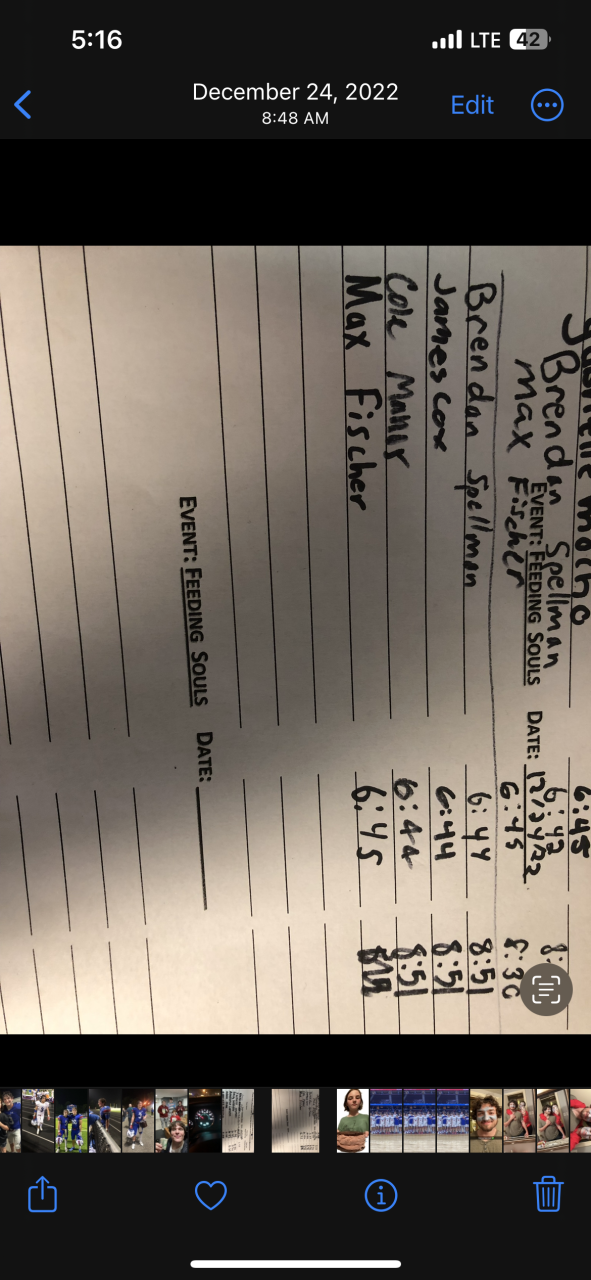 5:16
LTE 42
December 24, 2022
8:48 AM
Edit
Brendan Spellman 6:42 8:
Max Fischer 6:45 8:30
EVENT: FEEDING SOULS DATE: 12/24/22
Brendan Spellman 6:44 8:51
James Cox 6:44 8:51
Cole 6:44 8:51
Max Fischer 6:45
EVENT: FEEDING SOULS DATE: